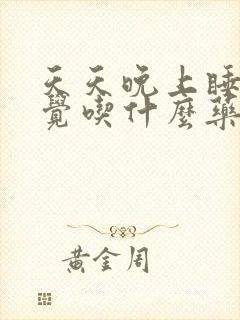 天天晚上睡
覺喫什麼藥
黃金周